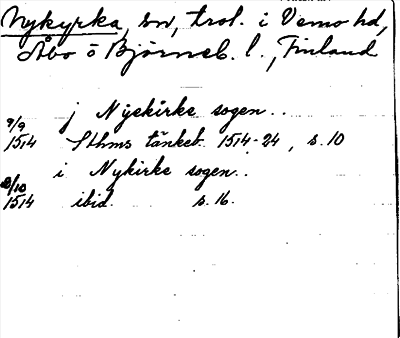 Nykyrka, sn, trol. i Vemo hd,
Åbo o Björneb. l., Finland
j Nÿekirke sogen..
9/9
1514 Sthms tänkeb. 1514-24, s. 10
i Nykirke sogen..
8/10
1514 ibid. s. 16.